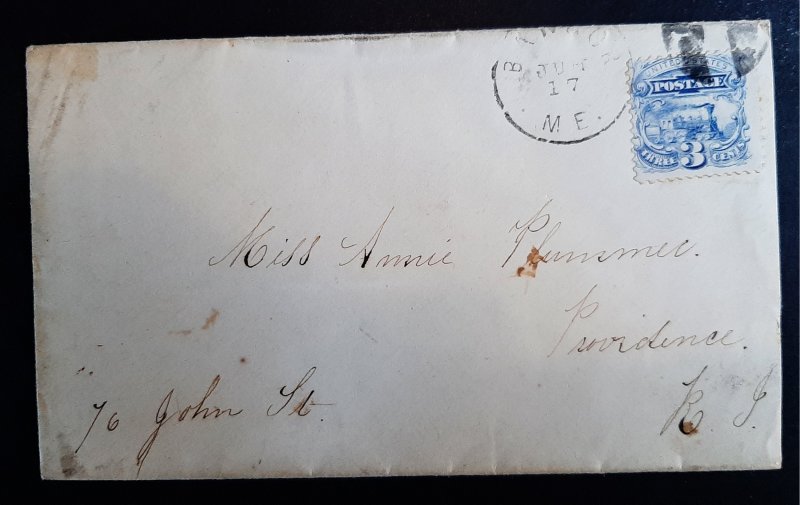 JUN
17
ME.
UNITED STATES
POSTAGE
THREE 3 CENTS
Miss Annie Plummer.
Providence.
R. I.
76 John St.